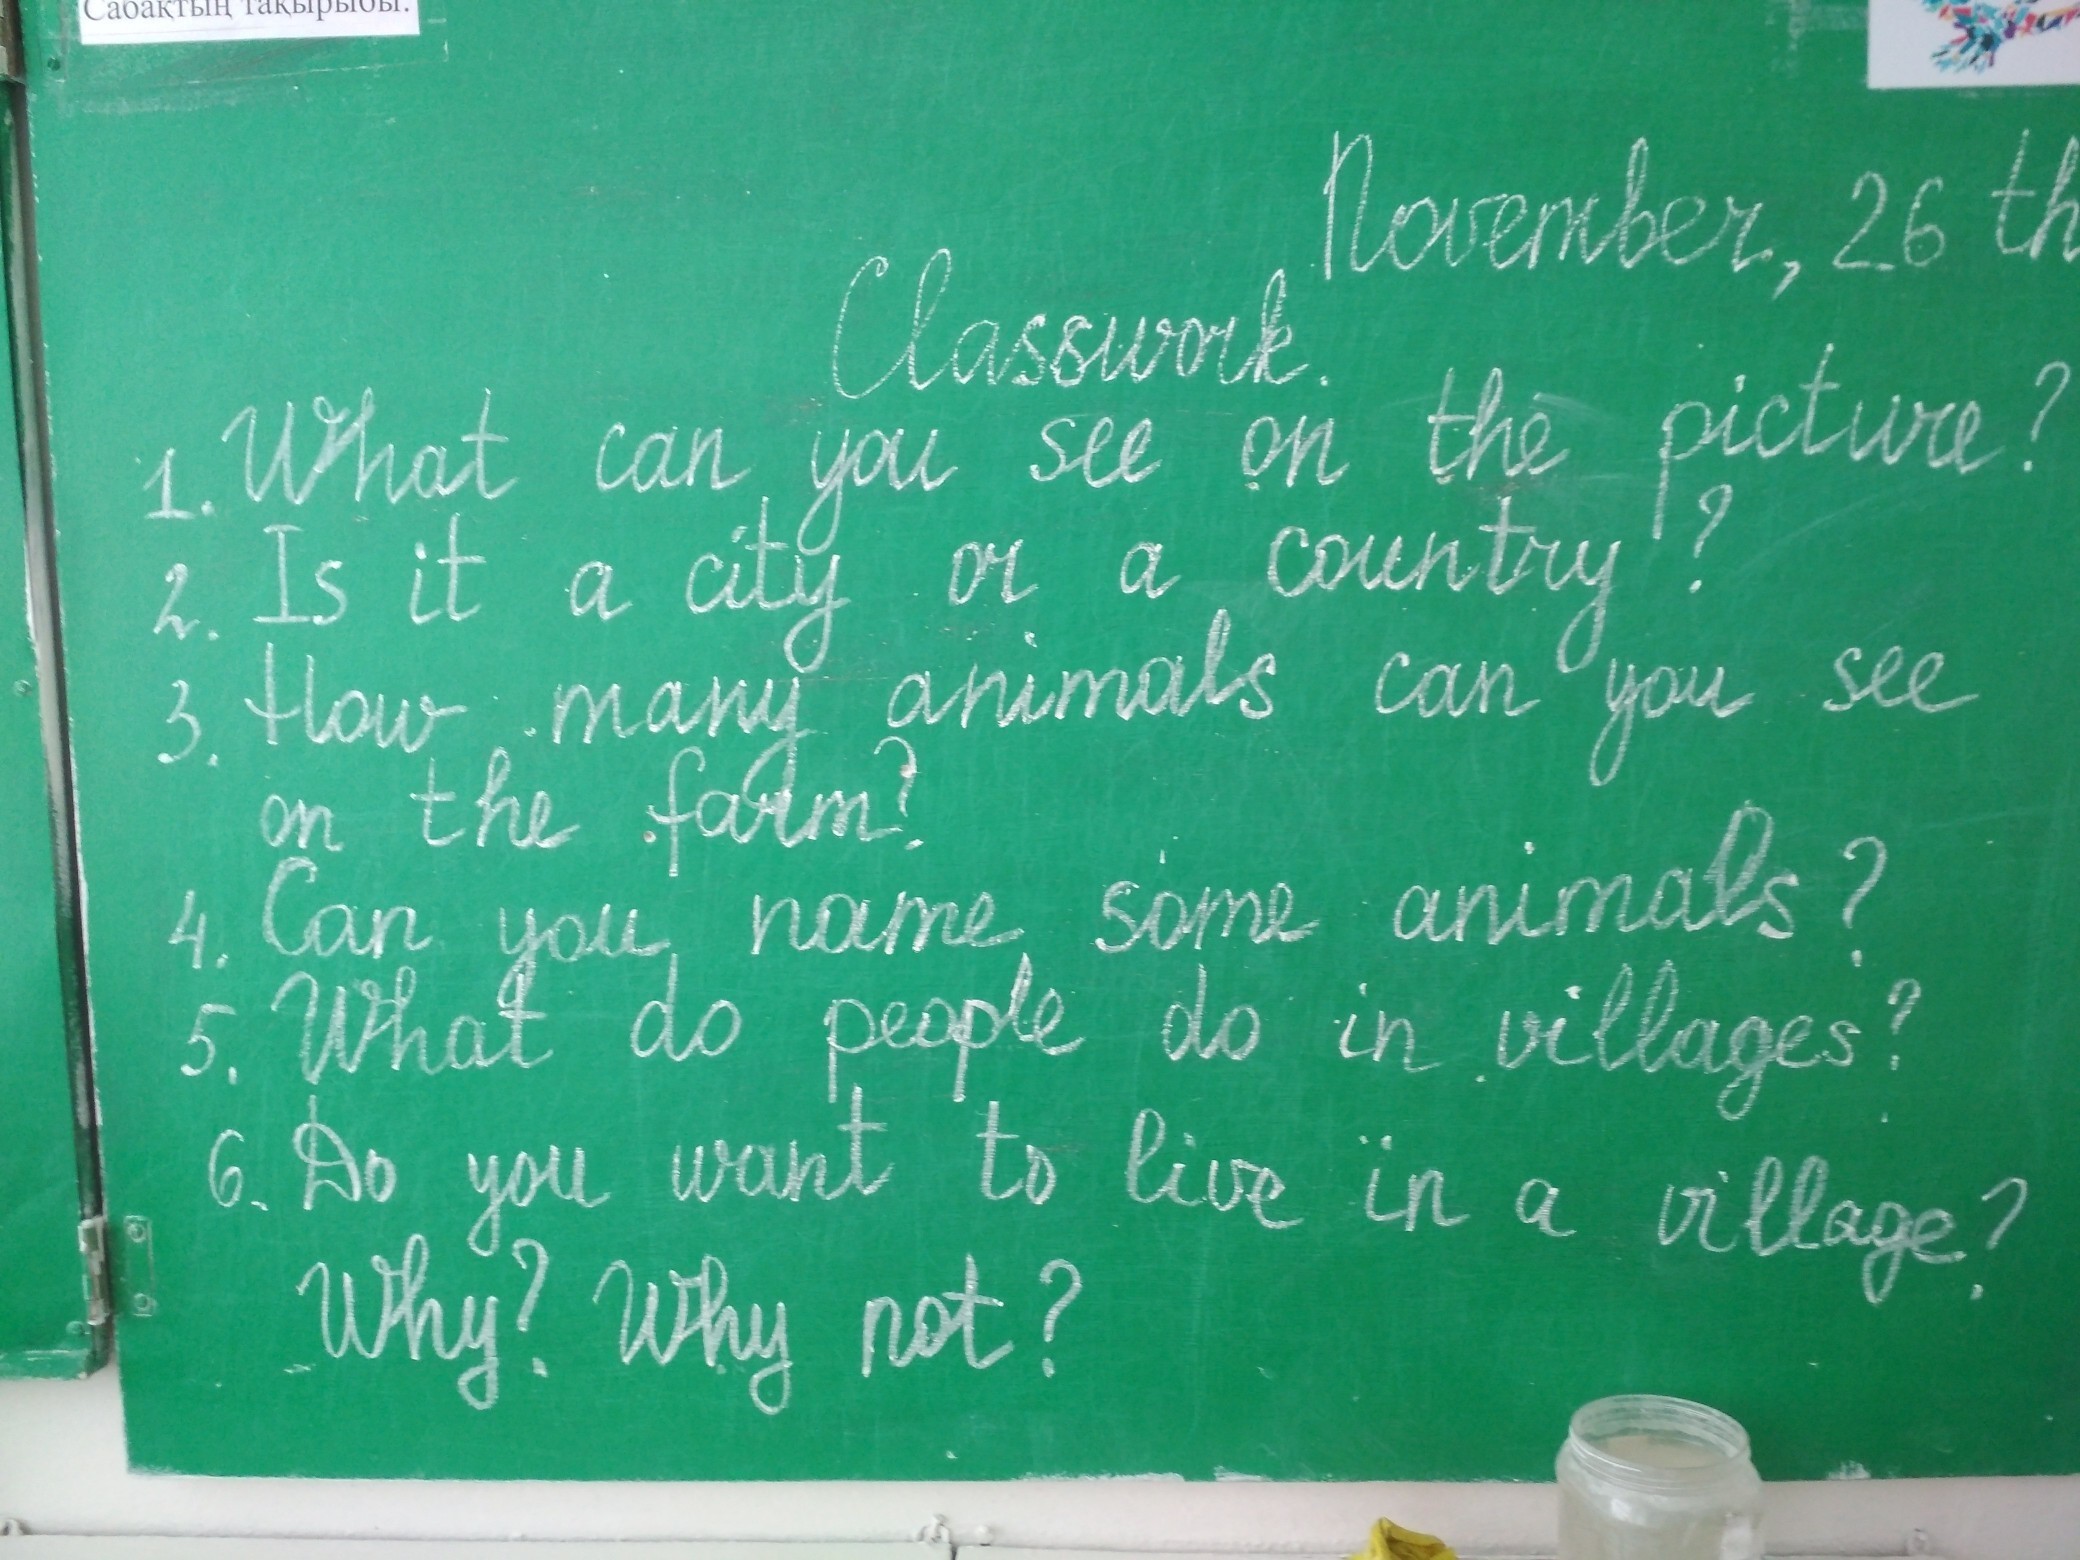 Сабақтың тақырыбы:
November, 26 th
Classwork.
1. What can you see on the picture?
2. Is it a city or a country?
3. How many animals can you see
on the farm?
4. Can you name some animals?
5. What do people do in villages?
6. Do you want to live in a village?
Why? Why not?